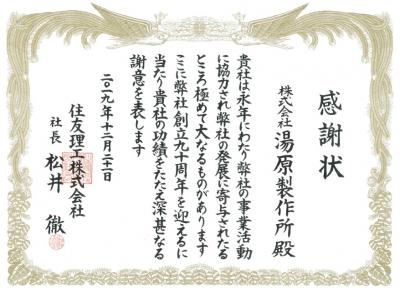 感謝状
株式会社 湯原製作所 殿
貴社は永年にわたり弊社の事業活動
に協力され弊社の発展に寄与されたる
ところ極めて大なるものがあります
ここに弊社創立九十周年を迎えるに
当たり貴社の功績をたたえ深甚なる
謝意を表します
二〇一九年十二月二十一日
住友理工株式会社
社長 松井 徹